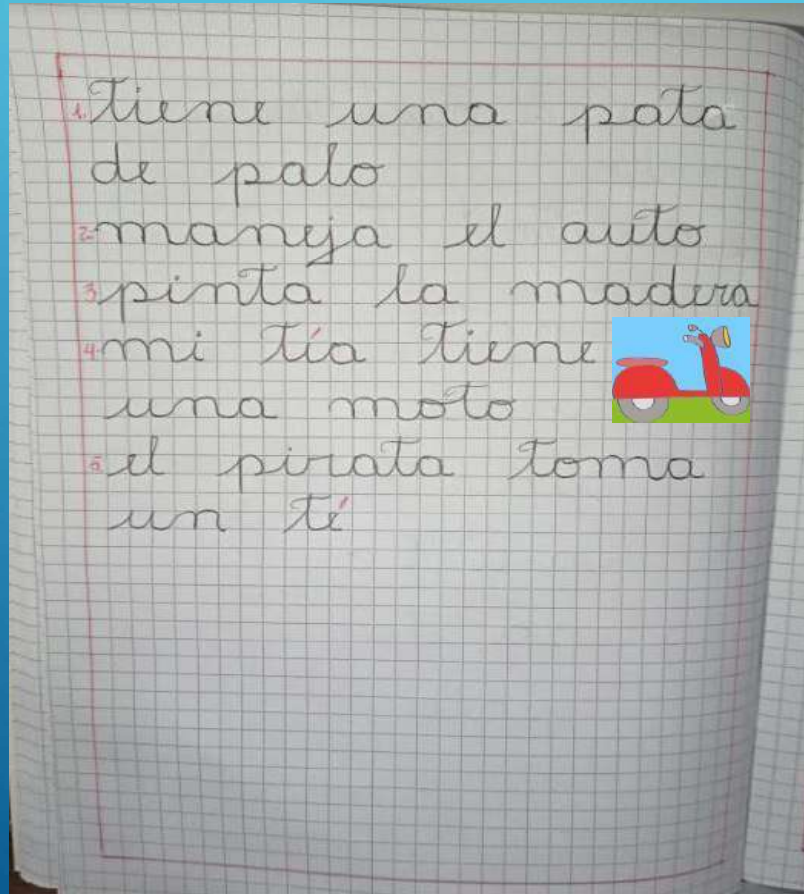 1. tiene una pata
de palo
2- maneja el auto
3 pinta la madera
4 mi tía tiene
una moto
5 el pirata toma
un té